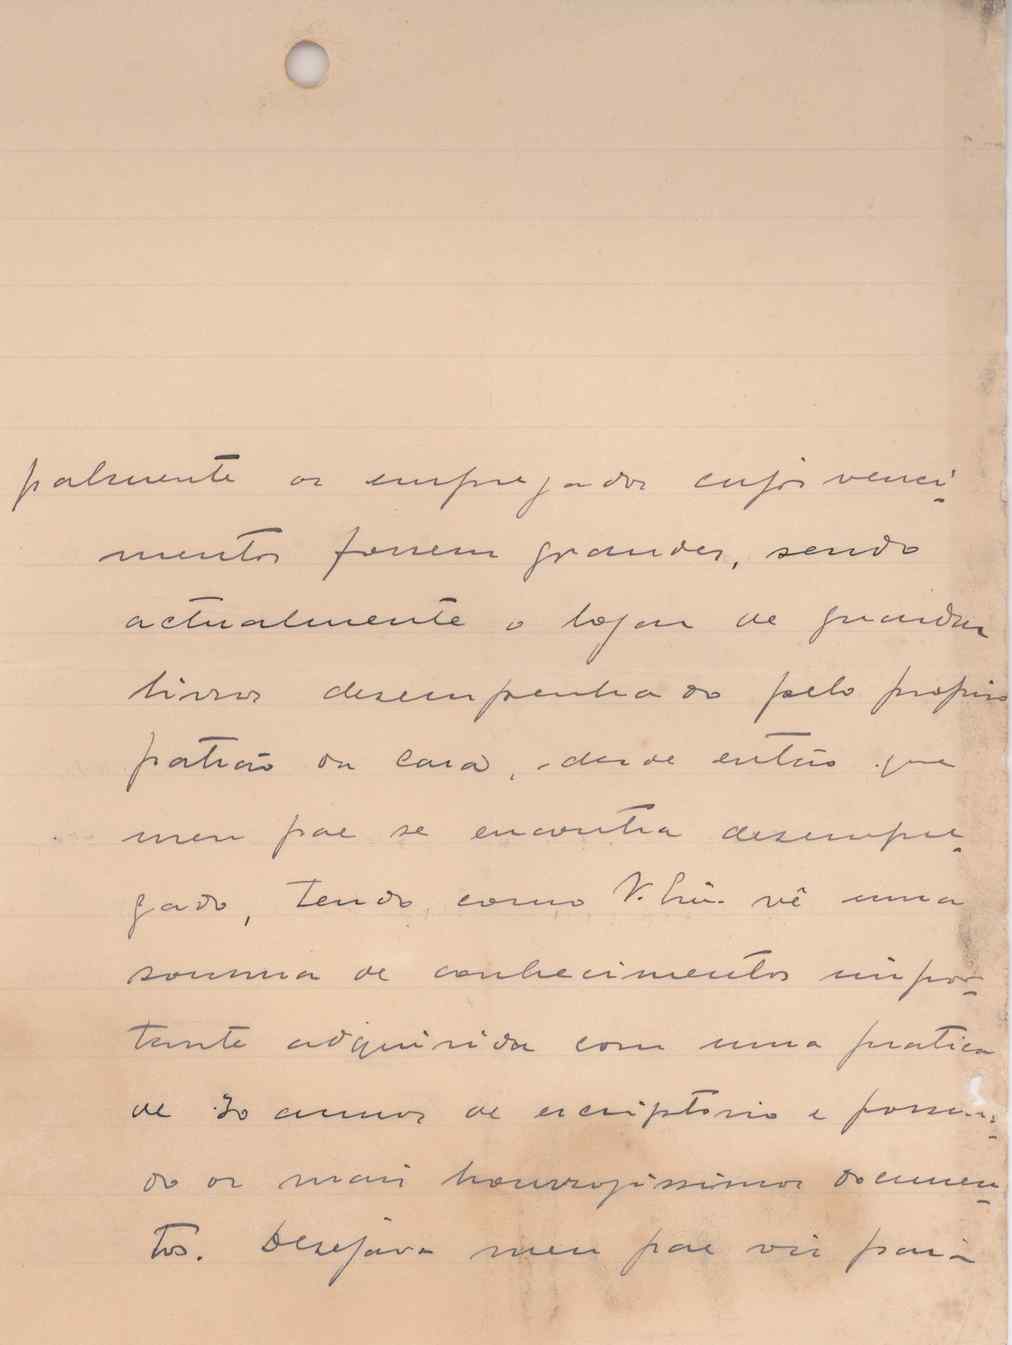 palmente os empregados cujos venci-
mentos fossem grandes, sendo
actualmente o logar de guarda
livros desempenhado pelo proprio
patrão da casa, desde então que
meu pae se encontra desempre-
gado, tendo como V. Ex.ª vê uma
somma de conhecimentos impor-
tante adquirida com uma pratica
de 30 annos de escriptorio e possuin-
do os mais honrosissimos documen-
tos. Desejava meu pae vir para